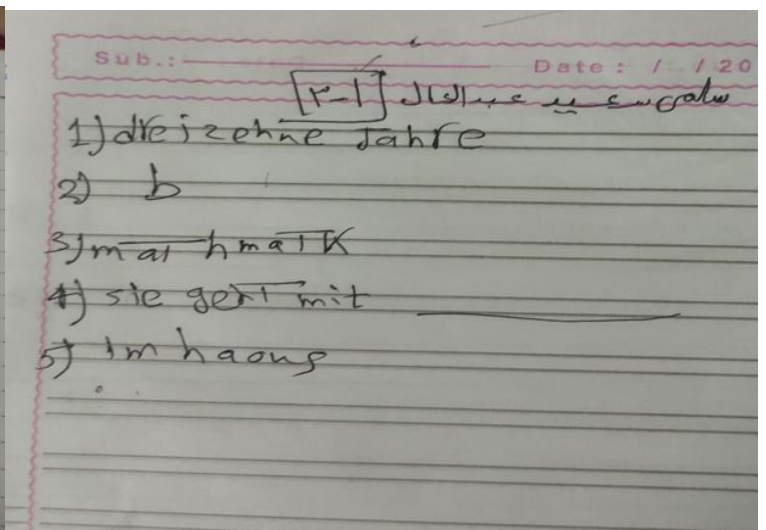 Sub.: Date : / / 20
سلمى سعيد عبدالعال [٢-١]
1) dreizehne Jahre
2) b
3) mathmatK
4) sie geht mit
5) im haous